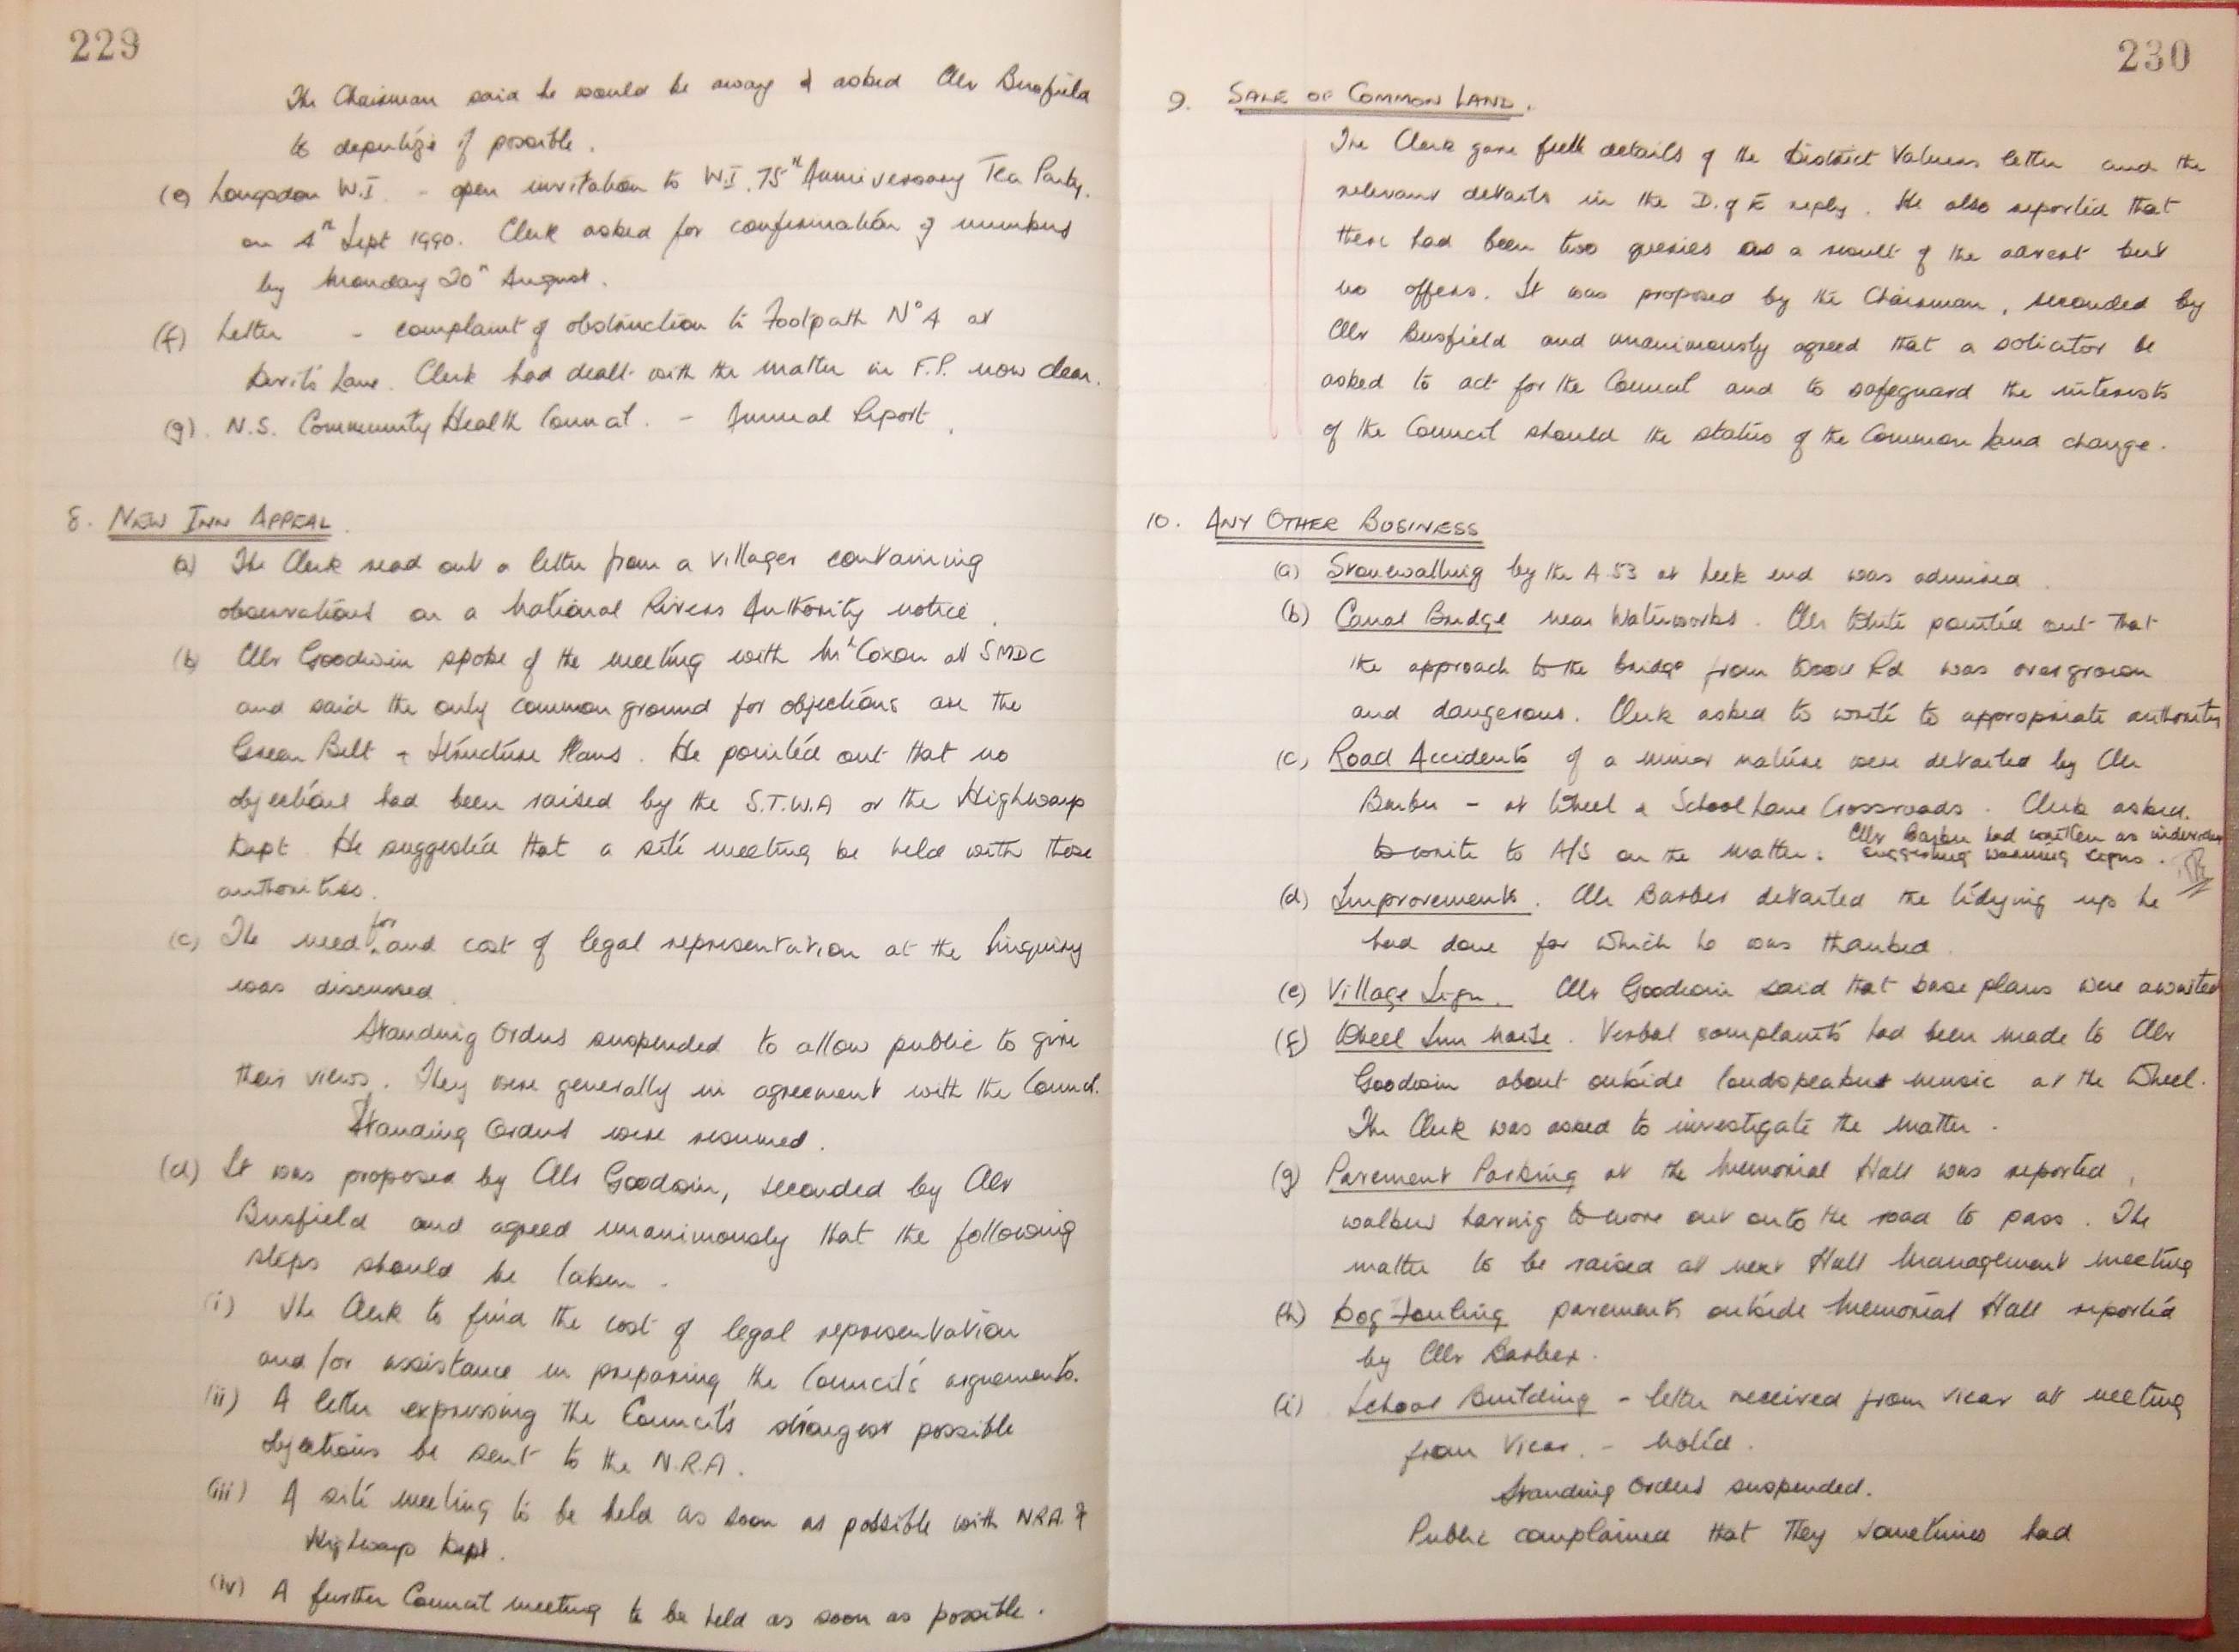 229
The Chairman said he would be away & asked Cllr Busfield
to deputize if possible.
(e) Longsdon W.I. - open invitation to W.I. 75th Anniversary Tea Party.
on 4th Sept 1990. Clerk asked for confirmation of numbers
by Monday 20th August.
(f) Letter - complaint of obstruction to Footpath No 4 at
Devil's Lane. Clerk had dealt with the matter F.P. now clear.
(g). N.S. Community Health Council. - Annual Report.
8. NEW INN APPEAL.
(a) The Clerk read out a letter from a villager containing
observations on a National Rivers Authority notice.
(b) Cllr Goodwin spoke of the meeting with Mr Coxon at SMDC
and said the only common ground for objections are the
Green Belt + Structure Plans. He pointed out that no
objections had been raised by the S.T.W.A or the Highways
Dept. He suggested that a site meeting be held with these
authorities.
(c) The need for and cost of legal representation at the Inquiry
was discussed.
Standing Orders suspended to allow public to give
their views. They were generally in agreement with the Council.
Standing Orders were resumed.
(d) It was proposed by Cllr Goodwin, seconded by Cllr
Busfield and agreed unanimously that the following
steps should be taken.
(i) The Clerk to find the cost of legal representation
and/or assistance in preparing the Council's arguments.
(ii) A letter expressing the Council's strongest possible
objections be sent to the N.R.A.
(iii) A site meeting to be held as soon as possible with NRA &
Highways Dept.
(iv) A further Council meeting to be held as soon as possible.
230
9. SALE OF COMMON LAND.
The Clerk gave full details of the District Valuers letter and the
relevant details in the D. of E reply. He also reported that
there had been two queries as a result of the advert but
no offers. It was proposed by the Chairman, seconded by
Cllr Busfield and unanimously agreed that a solicitor be
asked to act for the Council and to safeguard the interests
of the Council should the status of the Common Land change.
10. ANY OTHER BUSINESS
(a) Stonewalling by the A 53 at Leek end was admired.
(b) Canal Bridge near Waterworks. Cllr White pointed out that
the approach to the bridge from Wood Rd was overgrown
and dangerous. Clerk asked to write to appropriate authority
(c) Road Accidents of a minor nature were detailed by Cllr
Barber - at Wheel & School Lane Crossroads. Clerk asked.
to write to A/S on the matter. Cllr Barber had written as
suggesting warning signs.
(d) Improvements. Cllr Barber detailed the tidying up he
had done for which he was thanked.
(e) Village Sign. Cllr Goodwin said that base plans were awaited
(f) Wheel Inn Noise. Verbal complaints had been made to Cllr
Goodwin about outside loudspeaker music at the Wheel.
The Clerk was asked to investigate the matter.
(g) Pavement Parking at the Memorial Hall was reported,
walkers having to move out onto the road to pass. The
matter to be raised at next Hall Management meeting
(h) Dog Fouling pavements outside Memorial Hall reported
by Cllr Barber.
(i) School Building - letter received from Vicar at meeting
from Vicar. - Noted.
Standing Orders suspended.
Public complained that they sometimes had